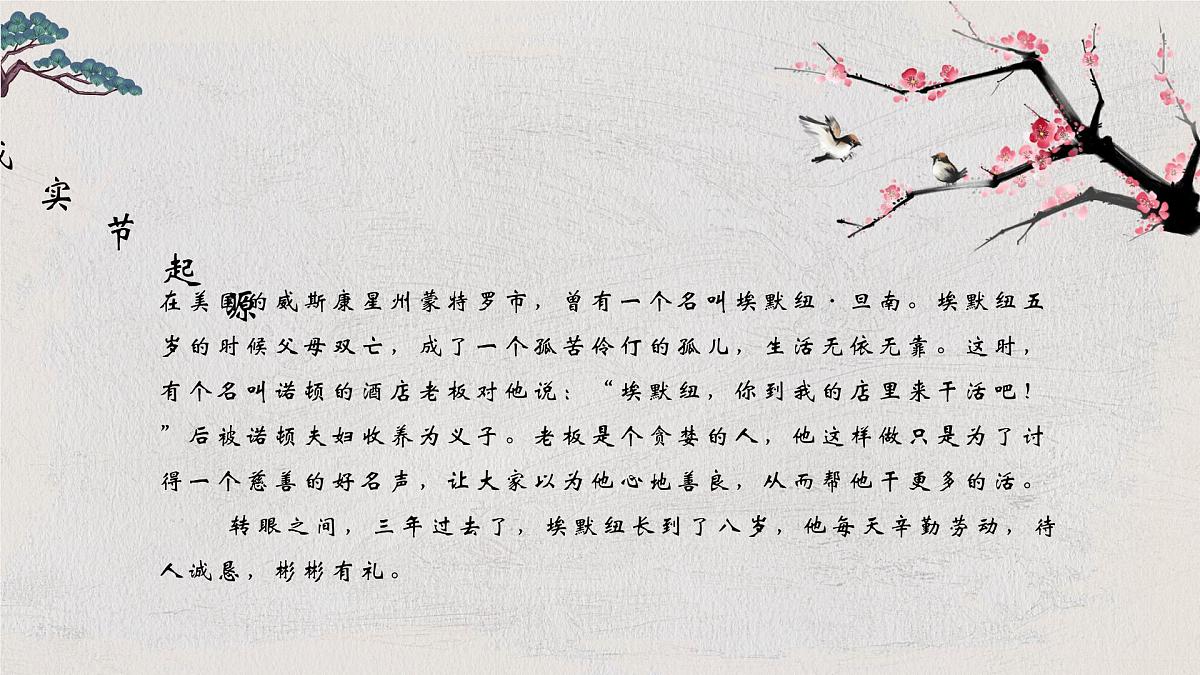 实节起源
在美国的威斯康星州蒙特罗市，曾有一个名叫埃默纽·旦南。埃默纽五
岁的时候父母双亡，成了一个孤苦伶仃的孤儿，生活无依无靠。这时，
有个名叫诺顿的酒店老板对他说：“埃默纽，你到我的店里来干活吧！
”后被诺顿夫妇收养为义子。老板是个贪婪的人，他这样做只是为了讨
得一个慈善的好名声，让大家以为他心地善良，从而帮他干更多的活。
转眼之间，三年过去了，埃默纽长到了八岁，他每天辛勤劳动，待
人诚恳，彬彬有礼。